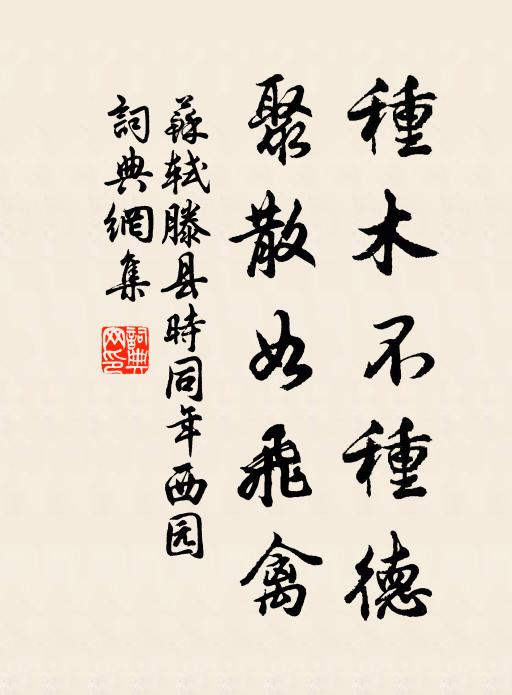 種木不種德
聚散如飛禽
蘇軾滕县時同年西园
詞典網集
詞典網印